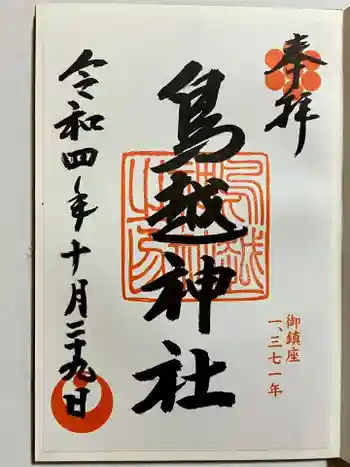 奉拝
御鎮座
一、三七一年
鳥越神社
令和四年十月二十九日